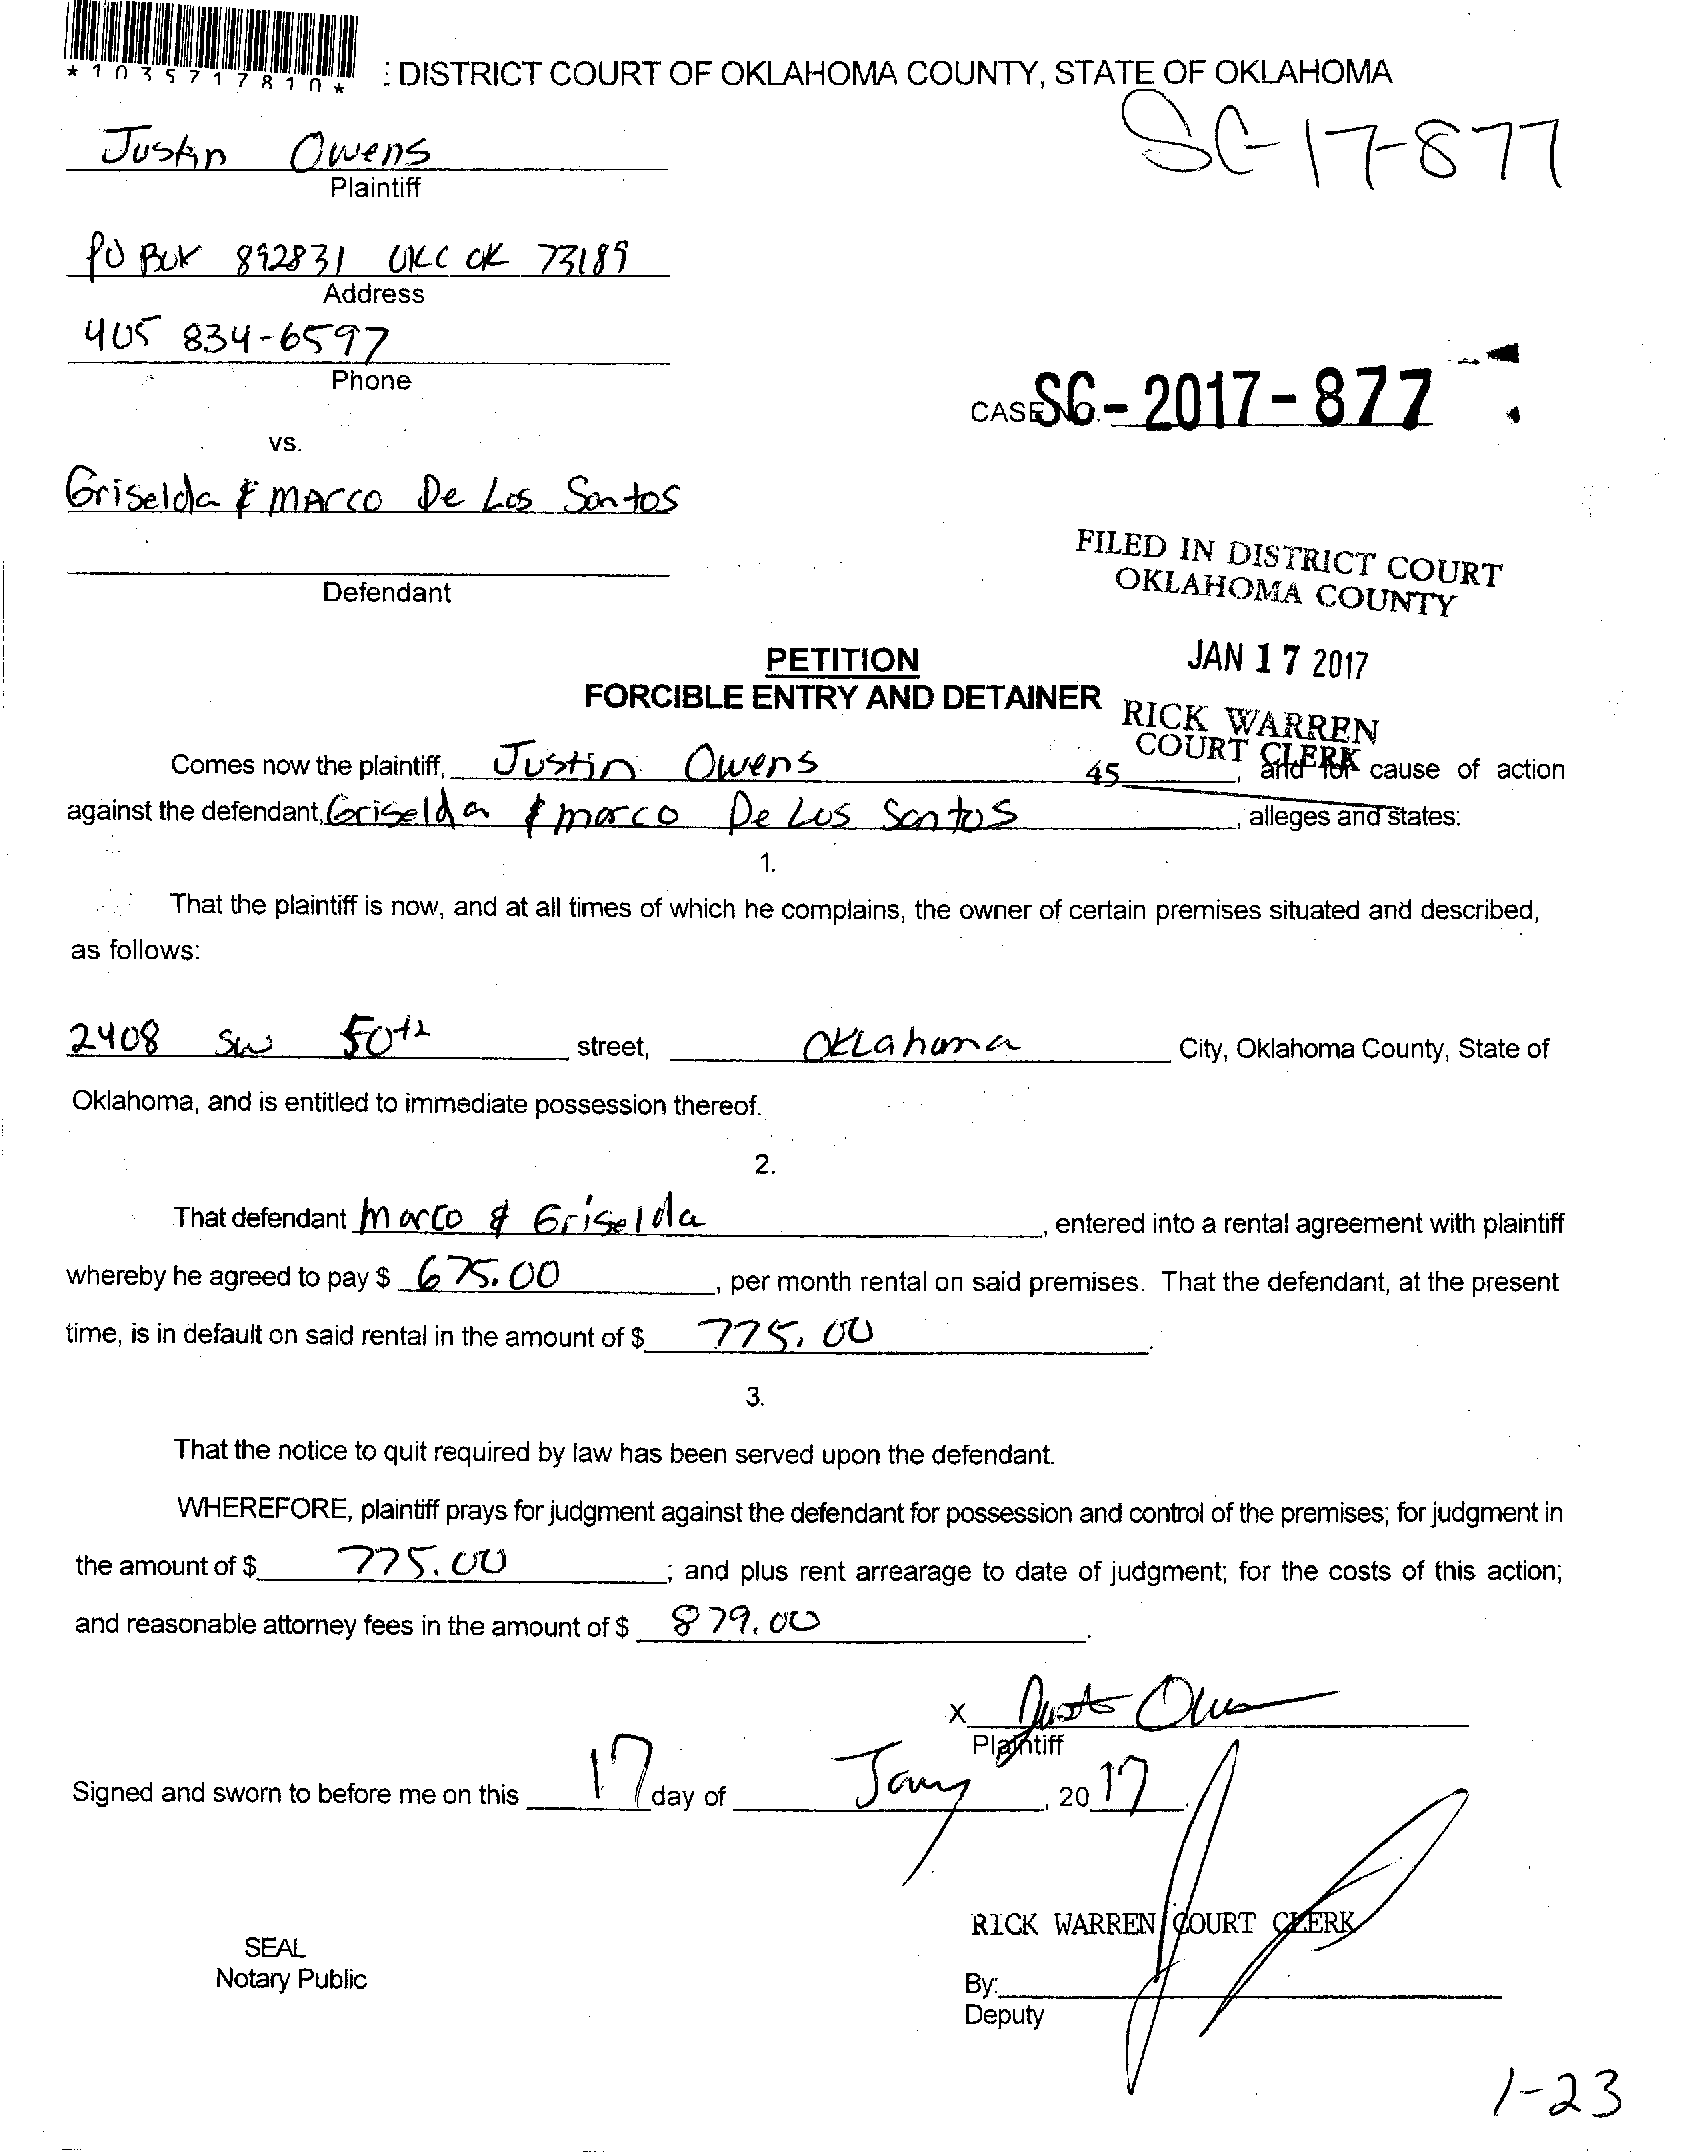 *1035717810*
: DISTRICT COURT OF OKLAHOMA COUNTY, STATE OF OKLAHOMA
SC-17-877
Justin Owens
Plaintiff
PO Box 892831 OKC OK 73189
Address
405 834-6597
Phone
CASE NO. SC-2017-877
vs.
Griselda & Marco De Los Santos
Defendant
FILED IN DISTRICT COURT
OKLAHOMA COUNTY
JAN 17 2017
RICK WARREN
COURT CLERK
45
PETITION
FORCIBLE ENTRY AND DETAINER
Comes now the plaintiff, Justin Owens, and for cause of action
against the defendant, Griselda & Marco De Los Santos, alleges and states:
1.
That the plaintiff is now, and at all times of which he complains, the owner of certain premises situated and described,
as follows:
2408 SW 50th street, Oklahoma City, Oklahoma County, State of
Oklahoma, and is entitled to immediate possession thereof.
2.
That defendant Marco & Griselda, entered into a rental agreement with plaintiff
whereby he agreed to pay $ 675.00, per month rental on said premises. That the defendant, at the present
time, is in default on said rental in the amount of $ 775.00.
3.
That the notice to quit required by law has been served upon the defendant.
WHEREFORE, plaintiff prays for judgment against the defendant for possession and control of the premises; for judgment in
the amount of $ 775.00; and plus rent arrearage to date of judgment; for the costs of this action;
and reasonable attorney fees in the amount of $ 879.00.
x Justin Owens
Plaintiff
Signed and sworn to before me on this 17 day of Jany, 2017.
RICK WARREN COURT CLERK
SEAL
Notary Public
By:
Deputy
1-23